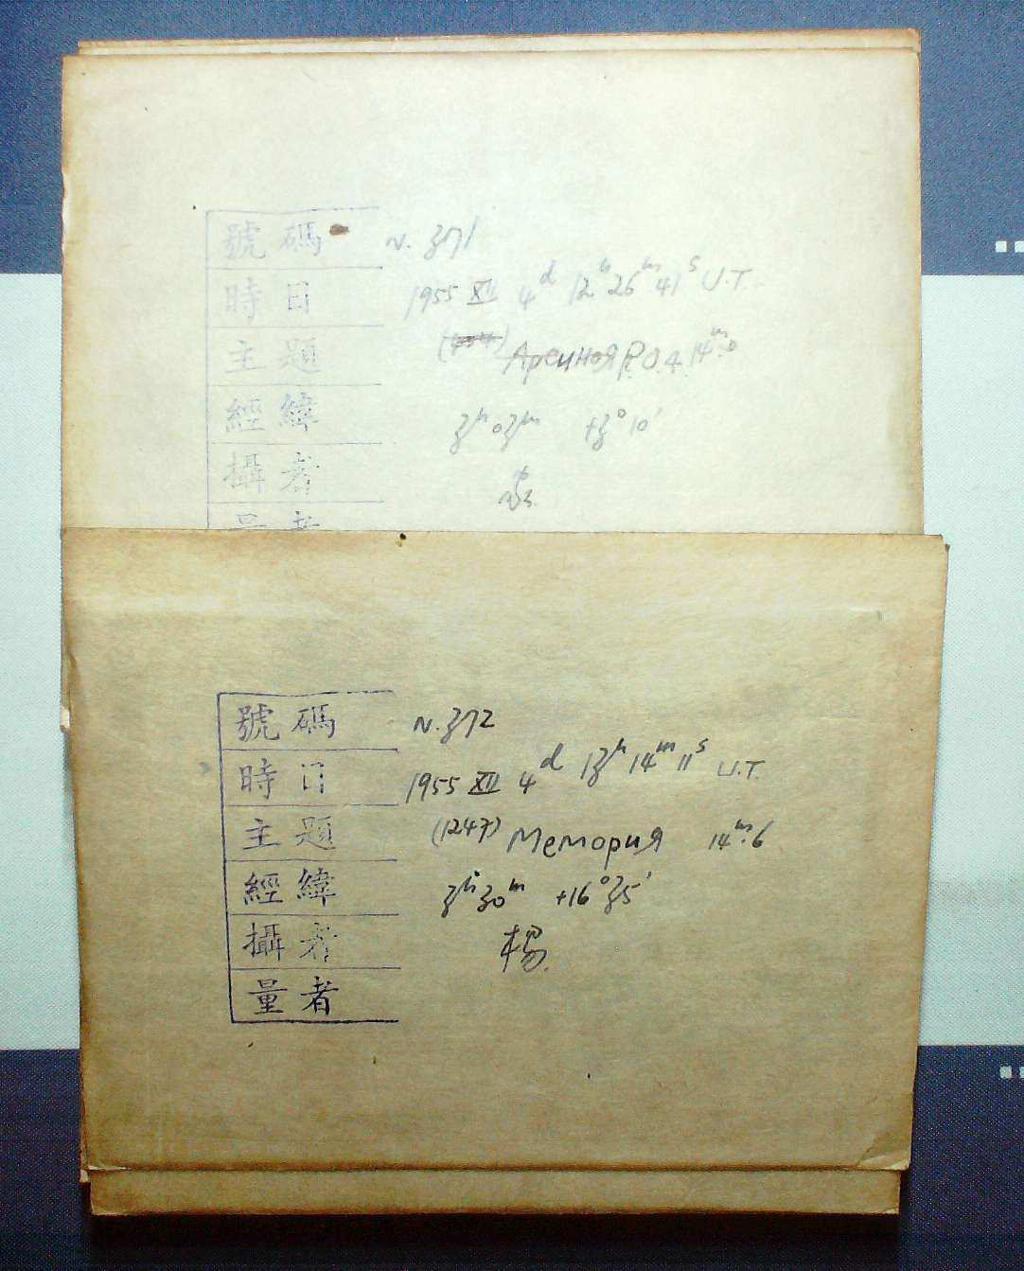 號碼 N. 371
時日 1955 XII 4d 12h 26m 41s U.T.
主題 Арсиноя P.O.4. 14m.0
經緯 3h 03m +3° 10'
攝者
量者
號碼 N. 372
時日 1955 XII 4d 13h 14m 11s U.T.
主題 (1247) Мемория 14m.6
經緯 3h 30m +16° 35'
攝者 楊.
量者